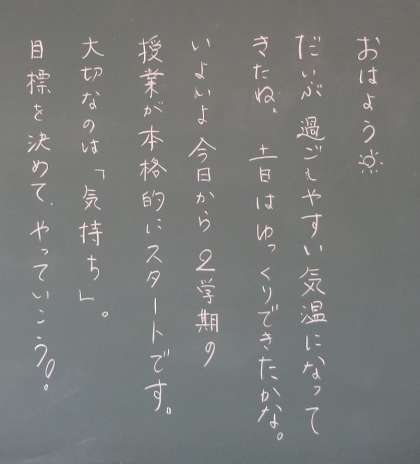 おはよう☀
だいぶ過ごしやすい気温になって
きたね。土日はゆっくりできたかな。
いよいよ今日から2学期の
授業が本格的にスタートです。
大切なのは「気持ち」。
目標を決めて、やっていこう!